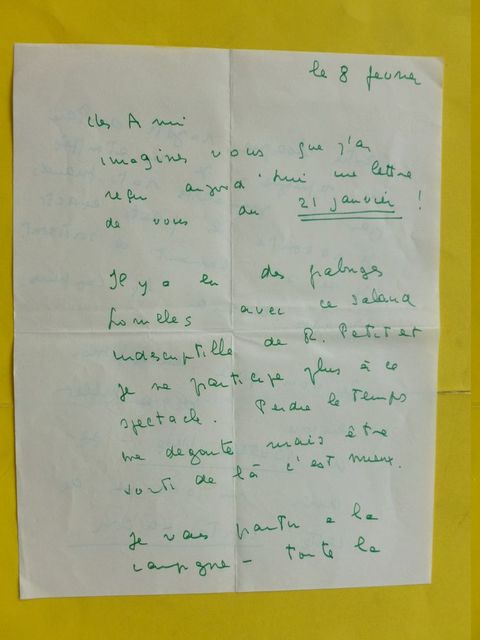 le 8 fevrier
cher Ami
imaginez vous que j'ai
reçu aujourd'hui une lettre
de vous du 21 janvier !
Il y a eu des palabres
avec ce salaud
indescriptible de R. Petit et
je ne participe plus à ce
spectacle. Perdre le temps
me degoute mais être
sorti de là c'est mieux.
Je vais partir a la
campgne – toute la